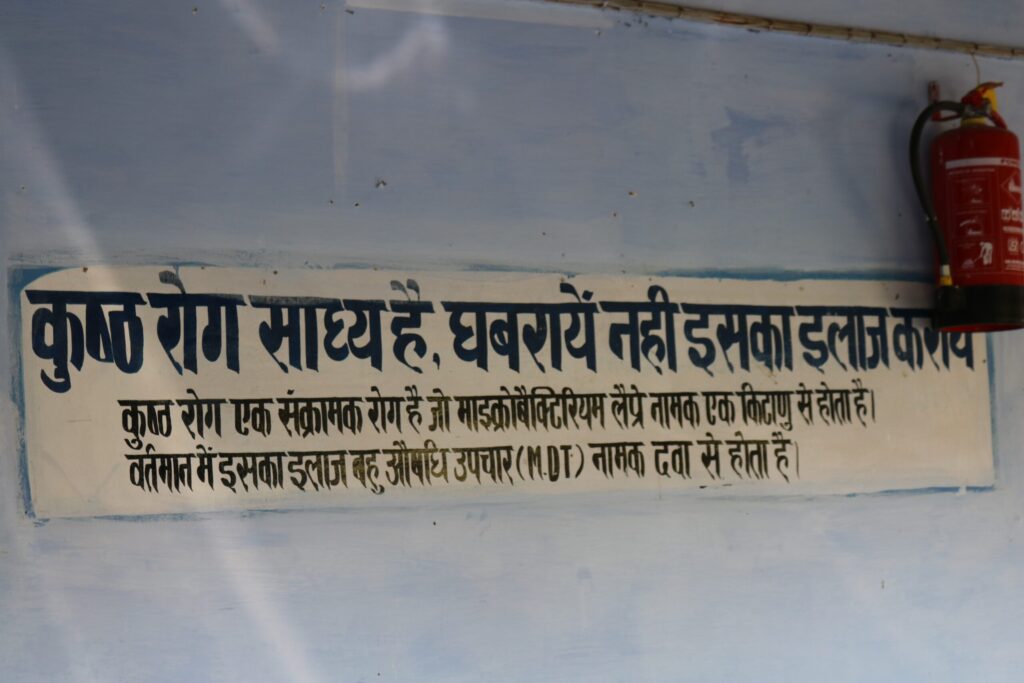 कुष्ठ रोग साध्य है, घबरायें नही इसका इलाज करायें
कुष्ठ रोग एक संक्रामक रोग है जो माइक्रोबैक्टिरियम लैप्रे नामक एक किटाणु से होता है।
वर्तमान में इसका इलाज बहु औषधि उपचार (M.DT) नामक दवा से होता है।